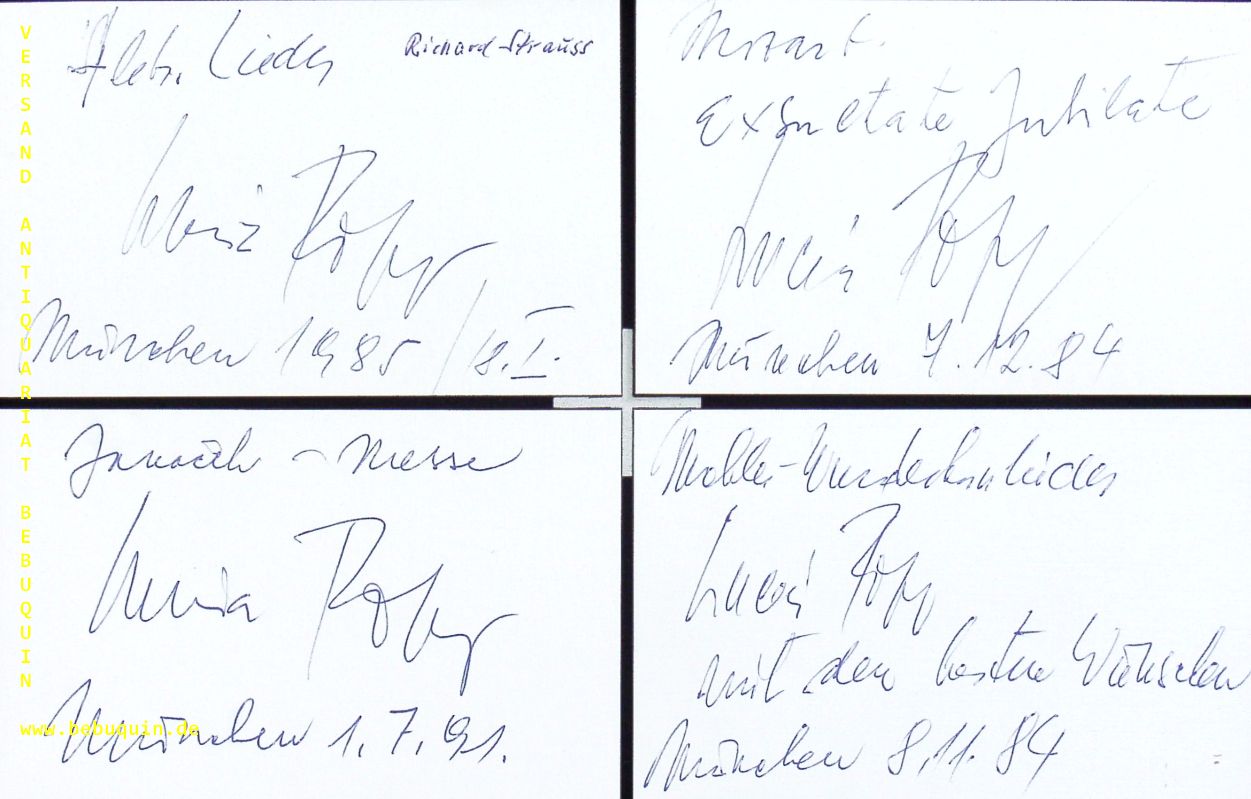 VERSAND ANTIQUARIAT BEBUQUIN
www.bebuquin.de
Lieder Richard Strauss
Lucia Popp
München 1985 / 18.I.
Mozart
Exsultate Jubilate
Lucia Popp
München 7.12.84
Janaček - Messe
Lucia Popp
München 1.7.91.
Mahler-Wunderhornlieder
Lucia Popp
mit den besten Wünschen
München 8.11.84